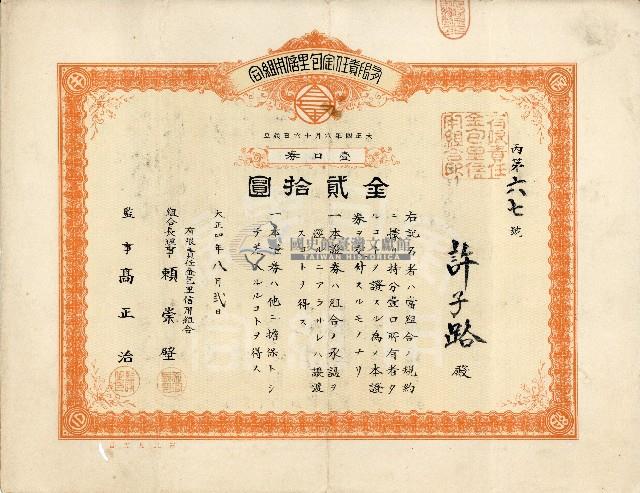 有限責任金包里信用組合
大正四年六月十六日設立
壹口券
金貳拾圓
丙第六七號
許子路殿
右記名者ハ當組合ノ規約
ニ據リ持分壹口所有者タ
ルコトヲ證スル為メ本證
券ヲ交付スルモノナリ
一本證券ハ組合ノ承認ヲ
經ルニアラサレハ讓渡
スコトヲ得ス
一本證券ハ他ニ擔保トシ
テ差入ルルコトヲ得ス
大正四年八月貳日
有限責任金包里信用組合
組合長理事 賴崇壁
監事 高正治
有限責任
金包里信
用組合印
國史館臺灣文獻館
TAIWAN HISTORICA